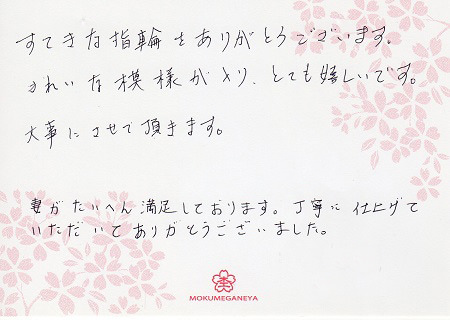 すてきな指輪をありがとうございます。
きれいな模様が入り、とても嬉しいです。
大事にさせて頂きます。
妻がたいへん満足しております。丁寧に仕上げて
いただいてありがとうございました。
MOKUMEGANEYA